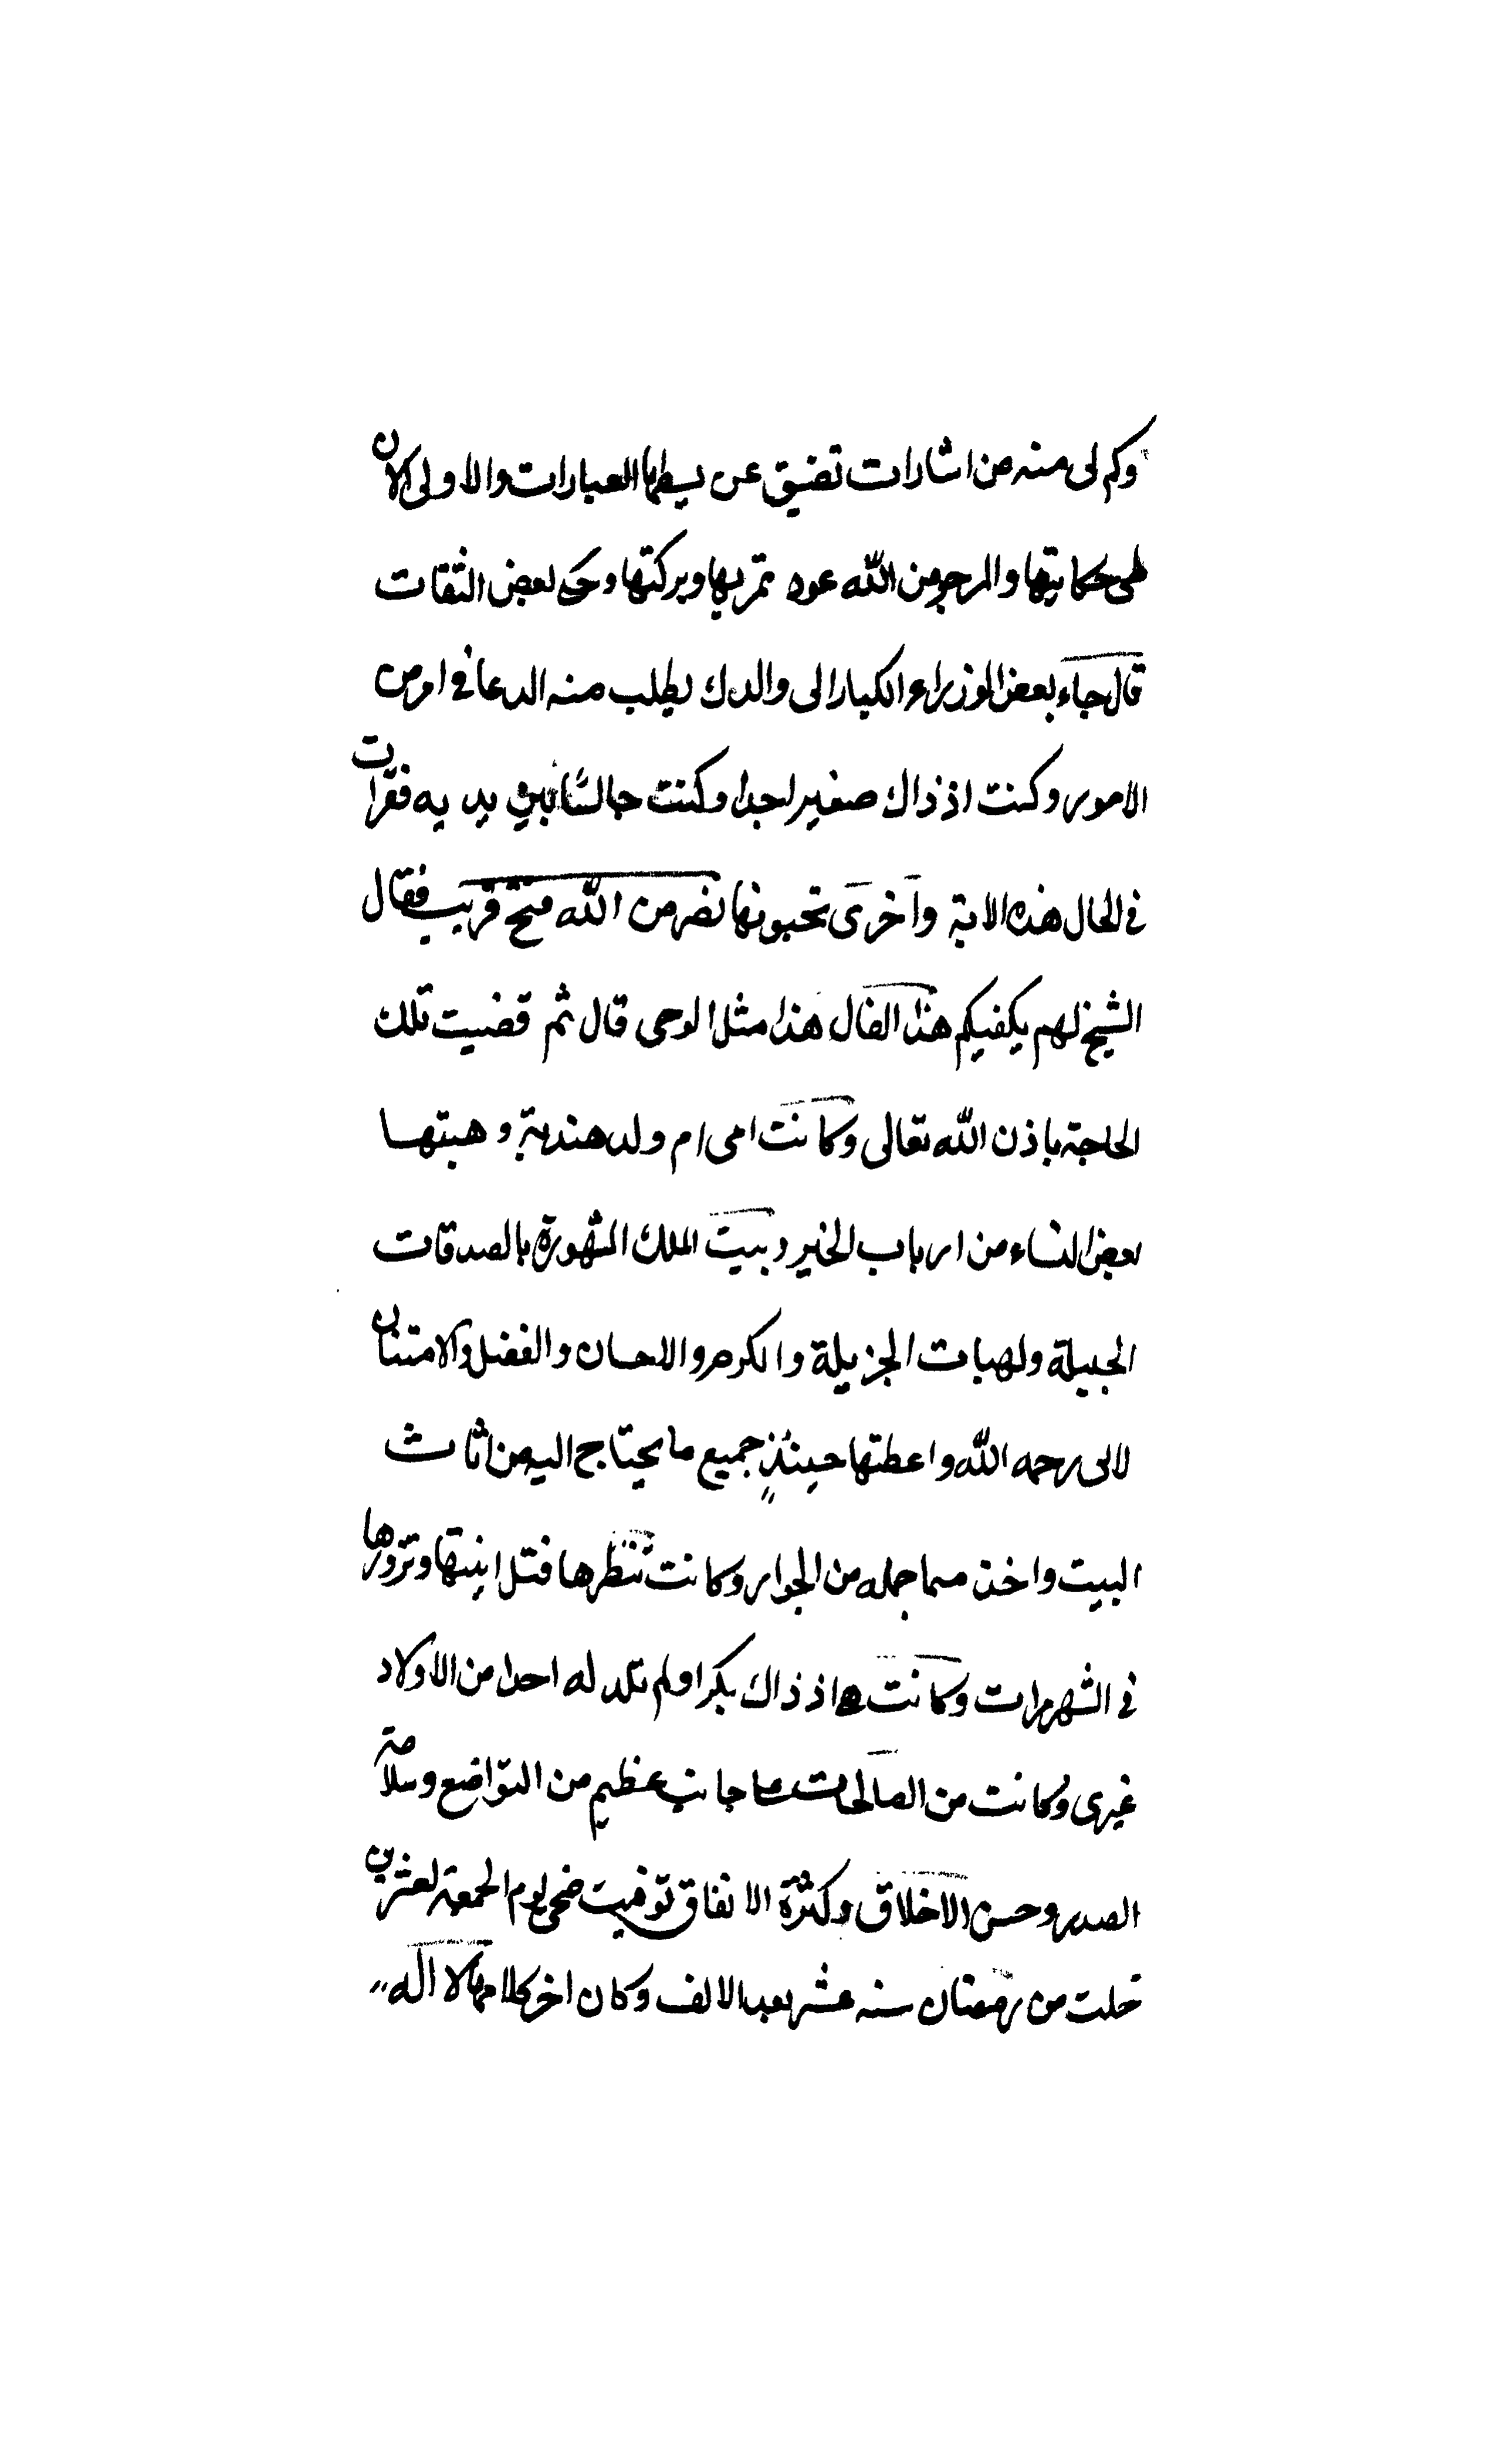 وكم لى منه من اشارات تضيق عن بسطها العبارات والاولى الان
طى حكايتها والمرجو من الله عود ثمرتها وبركتها وحكى بعض الثقات
قال جاء بعض الوزراء الكبار الى والدك يطلب منه الدعا فى امر من
الامور وكنت اذ ذاك صغيرا جدا وكنت جالسًا بين يديه فقرات
فى الحال هذه الاية وآخرى تحبونها نصر من الله فتح قريب فقال
الشيخ لهم يكفيكم هذا الفال هذا مثل الوحى قال ثم قضيت تلك
الحاجة باذن الله تعالى وكانت امى ام ولد هندية وهبتها
بعض النساء من ارباب الخير وبيت الملك المشهورة بالصدقات
الجميلة ولهبات الجزيلة والكرم والاحسان والفضل والامتنان
لابى رحمه الله واعطتها حينئذٍ جميع ما يحتاج اليه من اثاث
البيت واخذ جمله من الجوار وكانت تنظرها مثل ابنتها وتزورها
فى الشهر مرات وكانت اذ ذاك بكرا ولم تلد له احدا من الاولاد
غيرى وكانت من الصالحات على جانب عظيم من التواضع وسلامة
الصدر وحسن الاخلاق وكثرة الانفاق توفيت ضحى يوم الجمعة لعشرين
خلت من رمضان سنه عشر بعد الالف وكان اخر كلامها لا اله